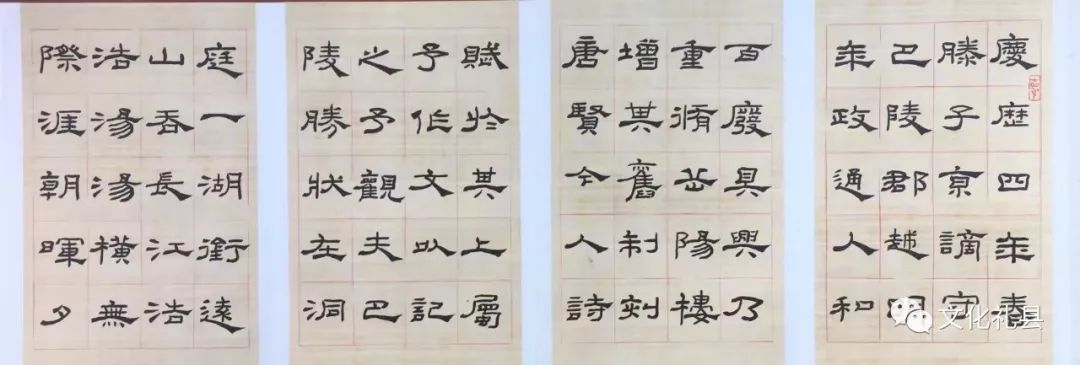 慶歷四年春
滕子京謫守
巴陵郡越明
年政通人和
百廢具興乃
重脩岳陽樓
增其舊制刻
唐賢今人詩
賦於其上屬
予作文以記
之予觀夫巴
陵勝狀在洞
庭一湖銜遠
山吞長江浩
浩湯湯橫無
際涯朝暉夕
文化礼县